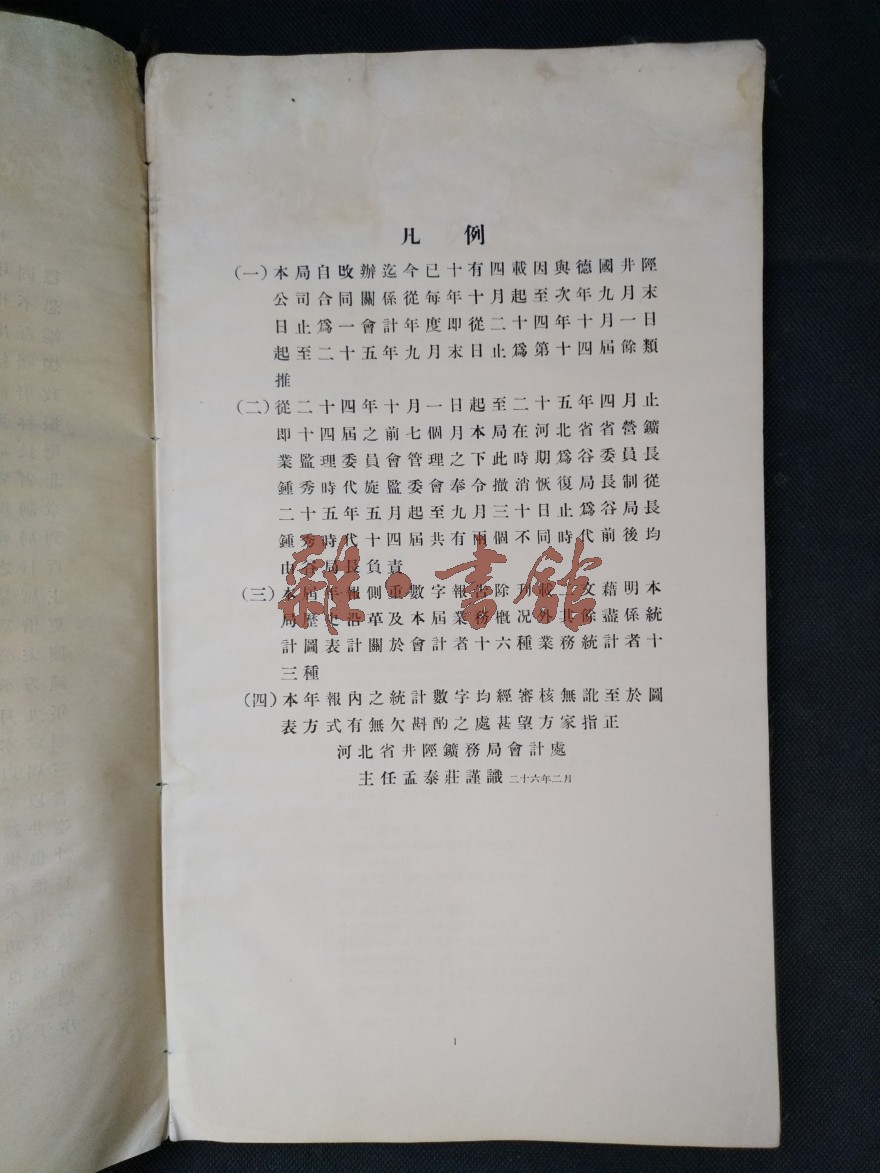 凡例
(一)本局自改辦迄今已十有四載因與德國井陘
公司合同關係從每年十月起至次年九月末
日止爲一會計年度即從二十四年十月一日
起至二十五年九月末日止爲第十四屆餘類
推
(二)從二十四年十月一日起至二十五年四月止
即十四屆之前七個月本局在河北省省營鑛
業監理委員會管理之下此時期爲谷委員長
鍾秀時代旋監委會奉令撤消恢復局長制從
二十五年五月起至九月三十日止爲谷局長
鍾秀時代十四屆共有兩個不同時代前後均
由谷局長負責
(三)本屆年報側重數字報告除刊載 文藉明本
局歷史沿革及本屆業務概况外其餘盡係統
計圖表計關於會計者十六種業務統計者十
三種
(四)本年報內之統計數字均經審核無訛至於圖
表方式有無欠斟酌之處甚望方家指正
河北省井陘鑛務局會計處
主任孟泰莊謹識 二十六年二月
雜·書館
1